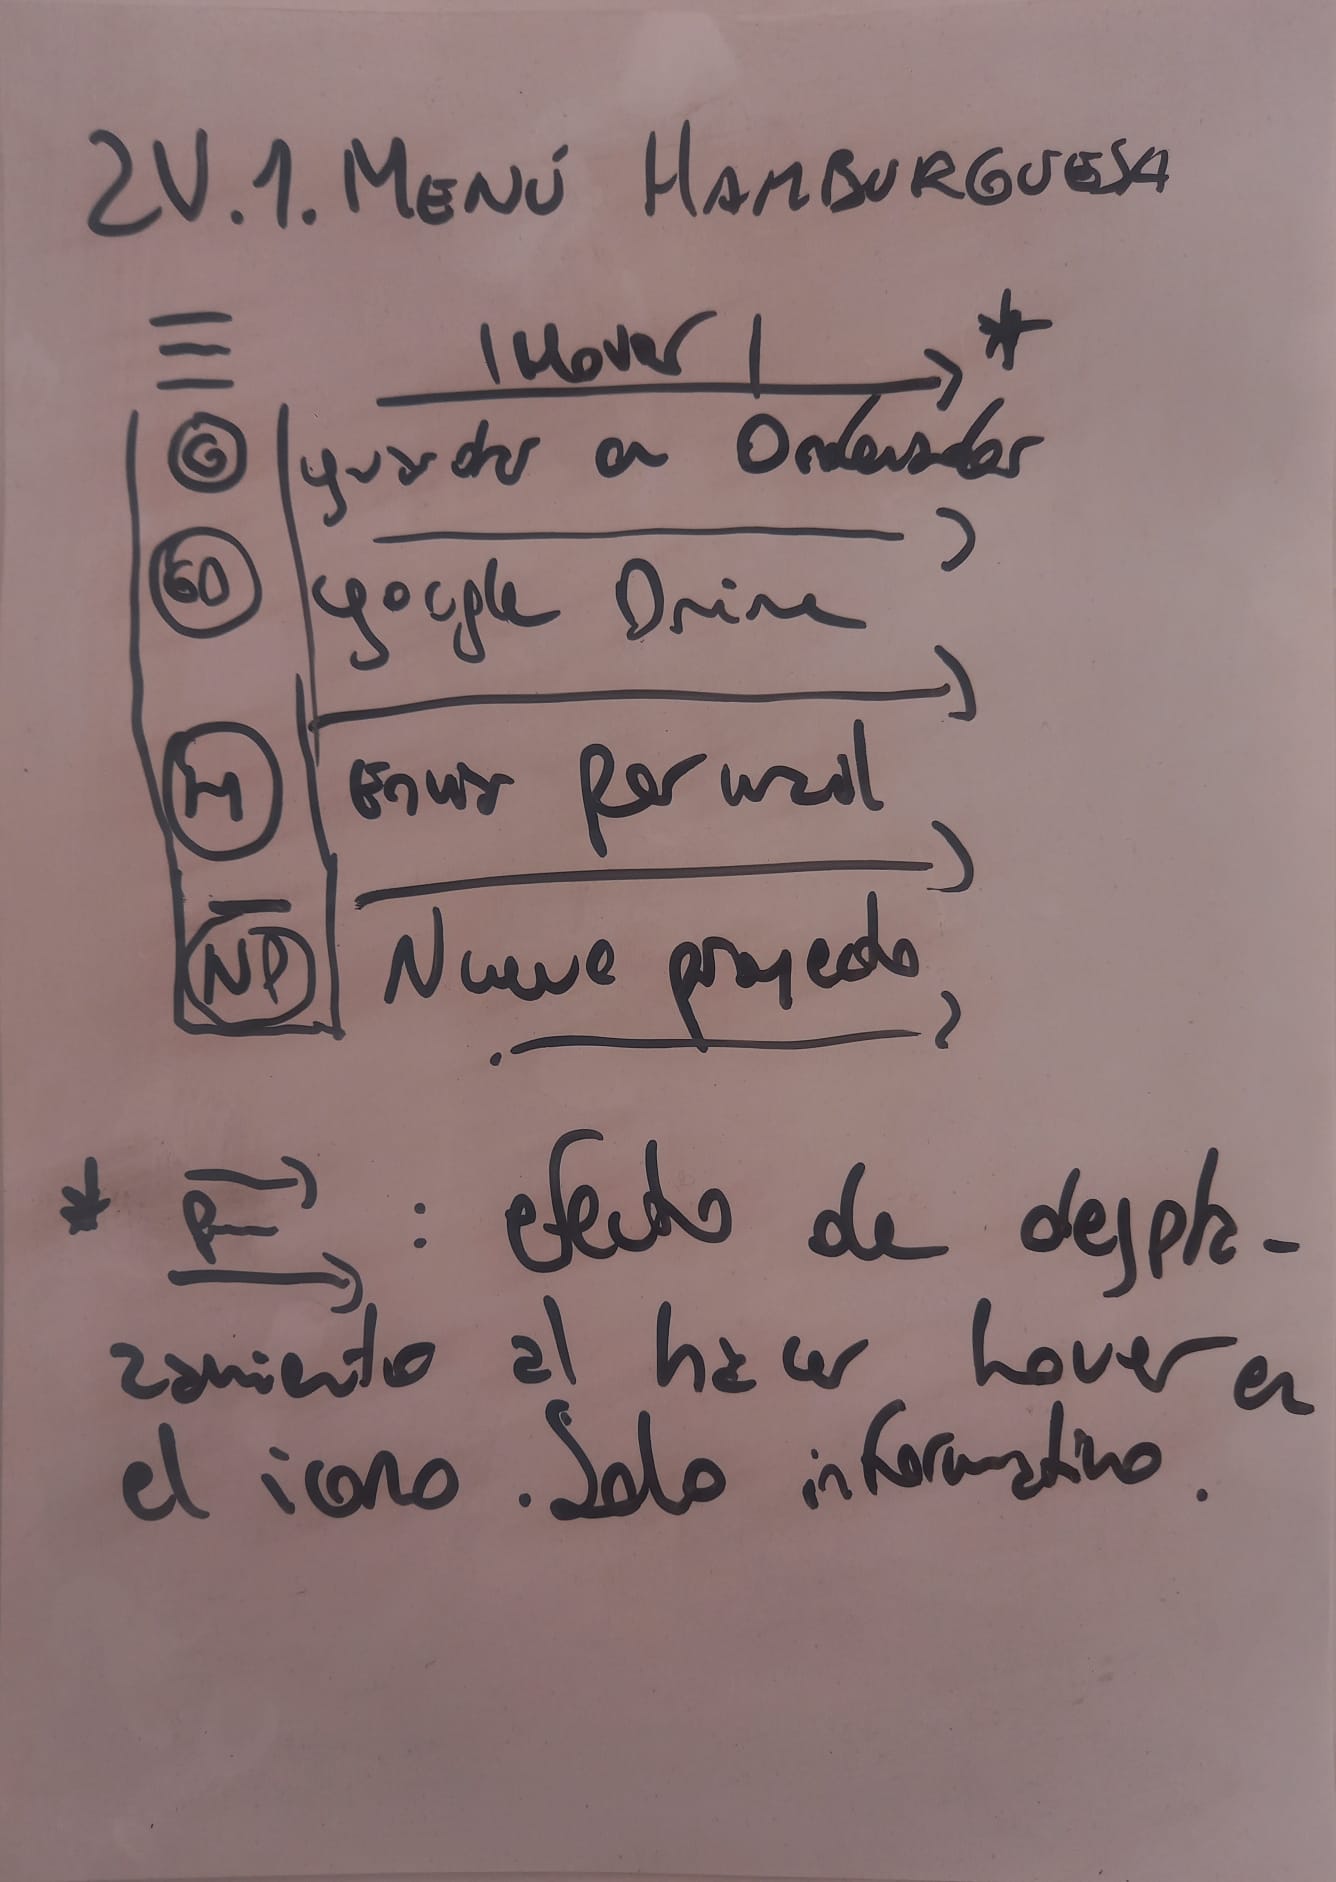 2V.1. MENÚ HAMBURGUESA
Hover *
G guardar en Ordenador
GD google Drive
M Enviar por mail
NP Nuevo proyecto
* : efecto de despla-
zamiento al hacer hover en
el icono. Solo informativo.